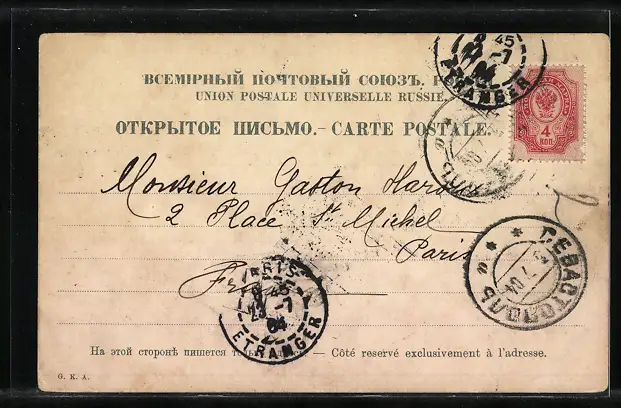 ВСЕМІРНЫЙ ПОЧТОВЫЙ СОЮЗЪ.
UNION POSTALE UNIVERSELLE RUSSIE.
ОТКРЫТОЕ ПИСЬМО.—CARTE POSTALE.
4
КОП
45
-7
04
ETRANGER
Monsieur Gaston
2 Place St Michel
Paris
СЕВАСТОПОЛЬ
PARIS
45
-7
04
ETRANGER
На этой сторонѣ пишется — Côté reservé exclusivement à l'adresse.
G. K. A.